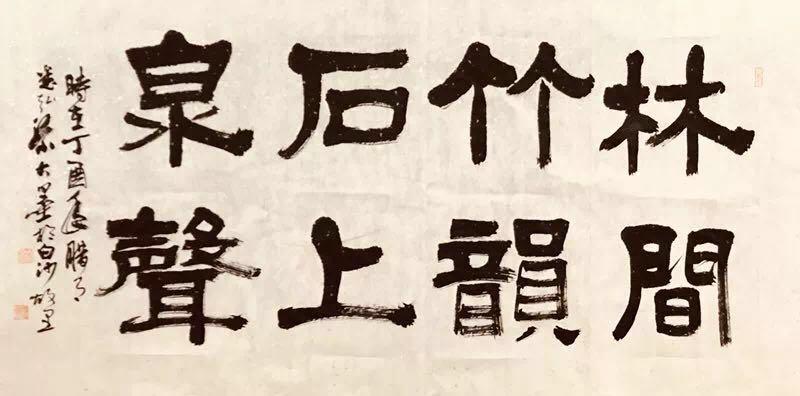 林間
竹韻
石上
泉聲
時在丁酉年腊月
大墨於白沙故里